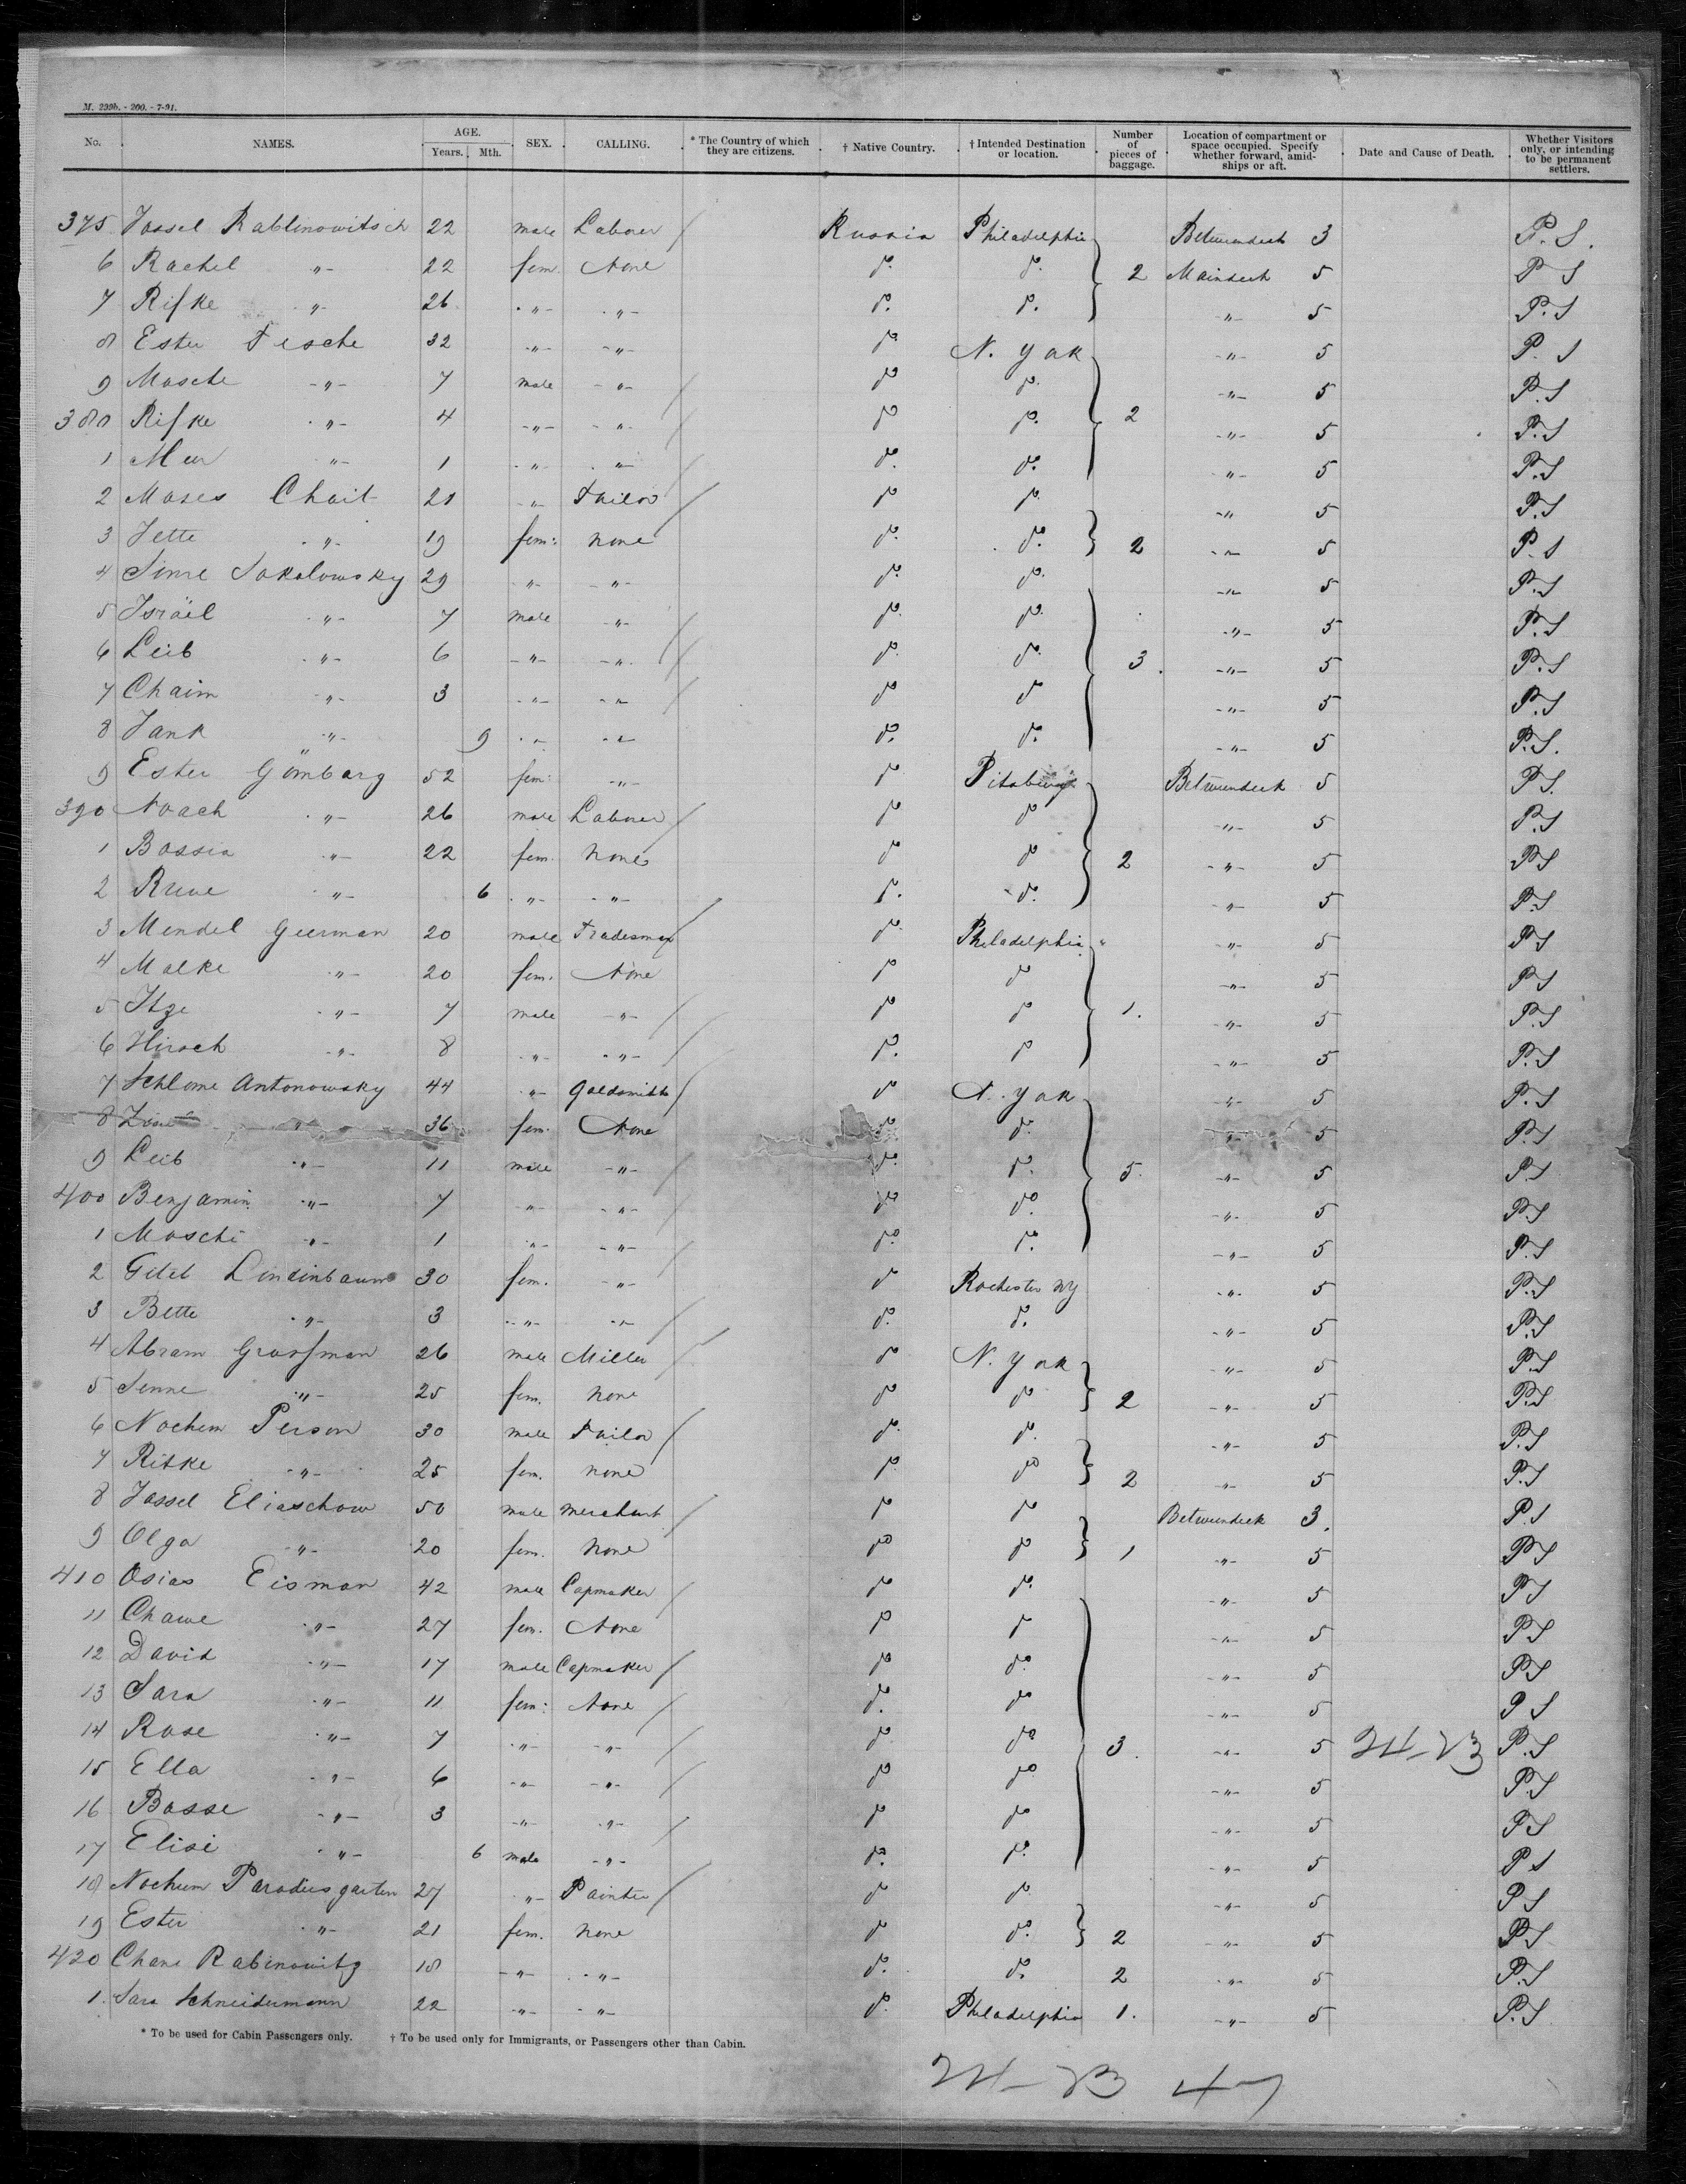 M. 299b. - 200. - 7-91.
No. NAMES. AGE. Years. Mth. SEX. CALLING. * The Country of which they are citizens. † Native Country. † Intended Destination or location. Number of pieces of baggage. Location of compartment or space occupied. Specify whether forward, amidships or aft. Date and Cause of Death. Whether Visitors only, or intending to be permanent settlers.
375 Jossel Rablinowitsch 22 male Labourer Russia Philadelphia Betweendeck 3 P. S.
6 Rachel -"- 22 fem. None do. do. 2 Maindeck 5 P S
7 Rifke -"- 26 -"- -"- do. do. -"- 5 P. S
8 Ester Fesche 32 -"- -"- do N. York -"- 5 P. S
9 Mosche -"- 7 male -"- do do. -"- 5 P. S
380 Rifke -"- 4 -"- -"- do do. 2 -"- 5 P. S
1 -"- 1 -"- -"- do. do. -"- 5 P. S
2 Moses Chait 21 -"- Tailor do do. -"- 5 P. S
3 Jette -"- 19 fem: none do. do. 2 -"- 5 P. S
4 Sime Sokolowsky 29 -"- -"- do. do. -"- 5 P. S
5 Isräil -"- 7 male -"- do. do. -"- 5 P. S
6 Leib -"- 6 -"- -"- do. do. 3. -"- 5 P. S
7 Chaim -"- 3 -"- -"- do do -"- 5 P. S
8 Jank -"- 9 -"- -"- do. do. -"- 5 P. S.
9 Ester Gömbarg 52 fem: -"- do Pitsburg Betweendeck 5 P S.
390 Noach -"- 26 male Labourer do do -"- 5 P. S
1 Bossia -"- 22 fem. None do do 2 -"- 5 P S
2 -"- 6 -"- -"- do. do. -"- 5 P. S
3 Mendel Geerman 20 male Tradesman do. Philadelphia -"- 5 P S
4 Malke -"- 20 fem. None do do -"- 5 P S
5 Itze -"- 7 male -"- do do 1. -"- 5 P. S
6 Hirsch -"- 8 -"- -"- do. do -"- 5 P. S
7 Schlome Antonowsky 44 -"- Goldsmith do N. York -"- 5 P. S
8 -"- 36 fem. None do. do. -"- 5 P. S
9 Leib -"- 11 male -"- do. do. 5. -"- 5 P. S
400 Benjamin -"- 7 -"- -"- do do. -"- 5 P. S
1 Mosche -"- 1 -"- -"- do. do. -"- 5 P. S
2 Gitel Lindinbaum 30 fem. -"- do Rochester NY -"- 5 P. S
3 Bette -"- 3 -"- -"- do. do. -"- 5 P. S
4 Abram Grossman 26 male Miller do N. York -"- 5 P. S
5 Senne -"- 25 fem. none do do 2 -"- 5 P. S
6 Nochem Person 30 male Tailor do. do. -"- 5 P. S
7 Rifke -"- 25 fem. none do. do 2 -"- 5 P. S
8 Jossel Eliaschow 50 male merchant do do Betweendeck 3. P. S
9 Olga -"- 20 fem. None do do 1 -"- 5 P S
410 Osias Eisman 42 male Capmaker do do. -"- 5 P S
11 Chawe -"- 27 fem. None do do -"- 5 P S
12 David -"- 17 male Capmaker do do. -"- 5 P S
13 Sara -"- 11 fem: None do. do -"- 5 P S
14 Rose -"- 7 -"- -"- do do 3. -"- 5 24-23 P. S
15 Ella -"- 6 -"- -"- do do -"- 5 P S
16 Basse -"- 3 -"- -"- do do -"- 5 P S
17 Elisi -"- 6 male -"- do. do. -"- 5 P S
18 Nochum Paradiesgarten 27 -"- Painter do do -"- 5 P S
19 Ester -"- 21 fem. none do do. 2 -"- 5 P S
420 Chane Rabinowitz 18 -"- -"- do. do. 2 -"- 5 P. S
1. Sara Schneidermann 22 -"- -"- do. Philadelphia 1. -"- 5 P. S
* To be used for Cabin Passengers only. † To be used only for Immigrants, or Passengers other than Cabin.
24-23 47